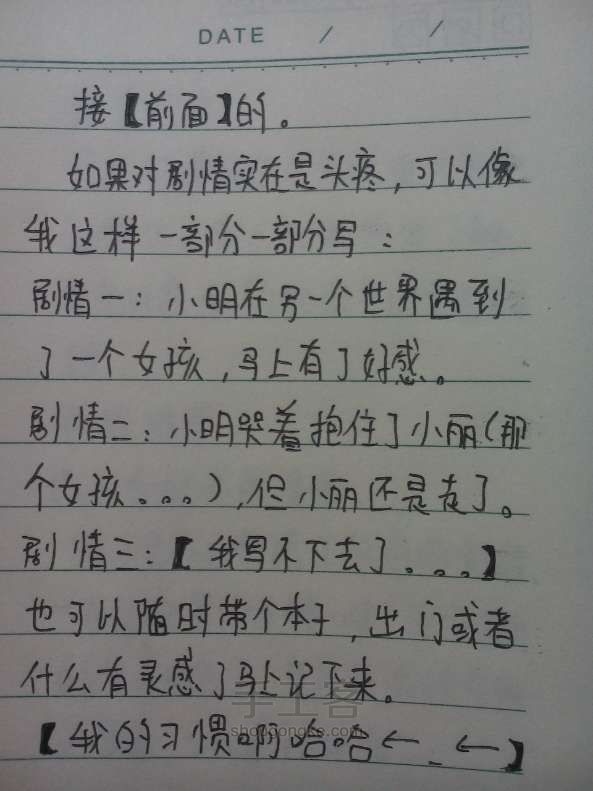 DATE / /
接【前面】的。
如果对剧情实在是头疼，可以像
我这样一部分一部分写：
剧情一：小明在另一个世界遇到
了一个女孩，马上有了好感。
剧情二：小明哭着抱住了小丽（那
个女孩。。。），但小丽还是走了。
剧情三：【我写不下去了。。。。】
也可以随时带个本子，出门或者
什么有灵感了马上记下来。
手工客
【我的习惯啊哈哈←_←】